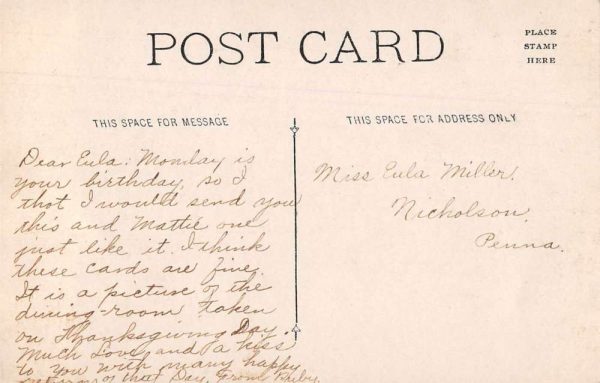 POST CARD
PLACE
STAMP
HERE
THIS SPACE FOR MESSAGE
THIS SPACE FOR ADDRESS ONLY
Dear Eula: Monday is
your birthday, so I
thot I would send you
this and Mattie one
just like it. I think
these cards are fine.
It is a picture of the
dining-room taken
on Thanksgiving Day.
Much Love and a kiss
to you with many happy
returns of that Day. From
Miss Eula Miller,
Nicholson,
Penna.